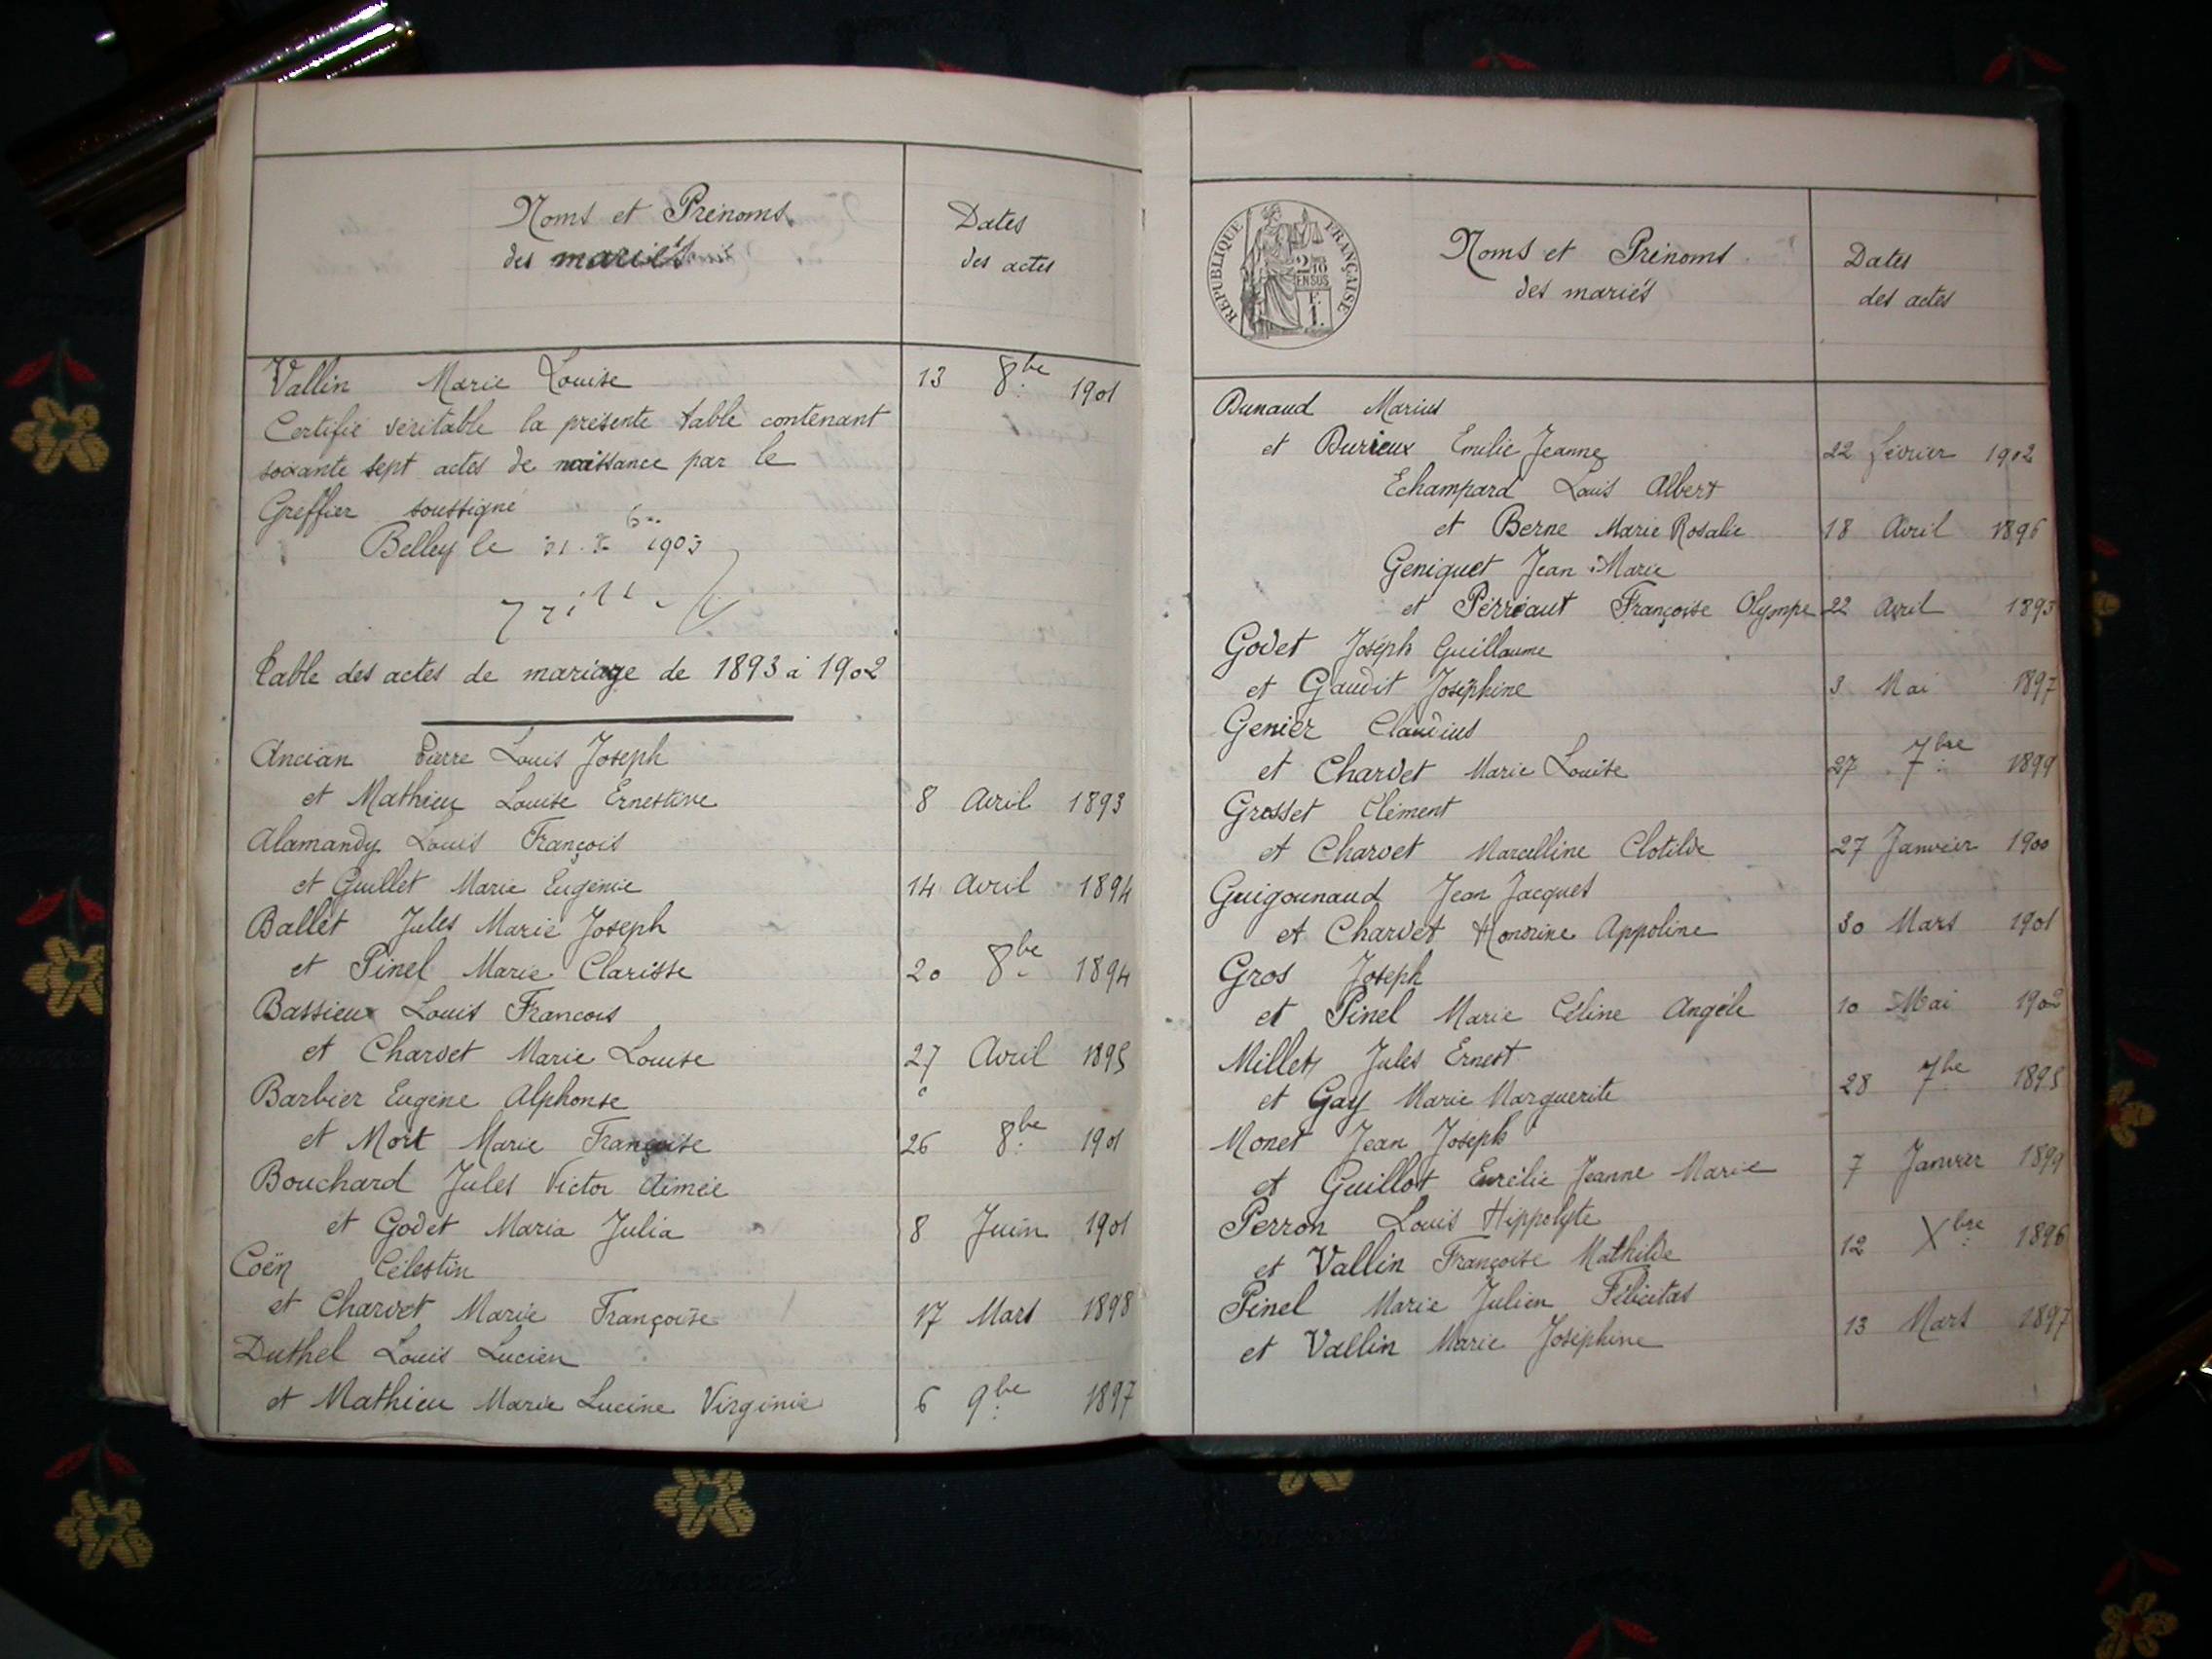 Noms et Prénoms
des mariés
Dates
des actes
Vallin Marie Louise 13 8bre 1901
Certifié véritable la présente table contenant
soixante sept actes de naissance par le
Greffier soussigné
Belley le 31 1903
Table des actes de mariage de 1893 à 1902
Ancian Pierre Louis Joseph
et Mathieu Louise Ernestine 8 Avril 1893
Alamandy Louis François
et Guillet Marie Eugénie 14 Avril 1894
Ballet Jules Marie Joseph
et Pinel Marie Clarisse 20 8bre 1894
Bassieux Louis Francois
et Charvet Marie Louise 27 Avril 1895
Barbier Eugène Alphonse
et Mort Marie Françoise 26 8bre 1901
Bouchard Jules Victor Aimée
et Godet Maria Julia 8 Juin 1901
Coën Célestin
et Charvet Marie Françoise 17 Mars 1898
Duthel Louis Lucien
et Mathieu Marie Lucine Virginie 6 9bre 1897
RÉPUBLIQUE FRANÇAISE
2/10
EN SUS
F.
1.
Noms et Prénoms
des mariés
Dates
des actes
Dunaud Marius
et Durieux Emilie Jeanne 22 février 1902
Echampard Louis Albert
et Berne Marie Rosalie 18 Avril 1896
Geniquet Jean Marie
et Perréaut Françoise Olympe 22 Avril 1893
Godet Joseph Guillaume
et Gaudit Joséphine 3 Mai 1897
Genier Claudius
et Charvet Marie Louise 27 7bre 1899
Grosset Clément
et Charvet Marcelline Clotilde 27 Janvier 1900
Guigounaud Jean Jacques
et Charvet Honorine Appoline 30 Mars 1901
Gros Joseph
et Pinel Marie Céline Angèle 10 Mai 1902
Millet Jules Ernest
et Gay Marie Marguerite 28 7bre 1895
Monet Jean Joseph
et Guillot Eurélie Jeanne Marie 7 Janvier 1899
Perron Louis Hippolyte
et Vallin Françoise Mathilde 12 Xbre 1896
Pinel Marie Julien Félicitas
et Vallin Marie Joséphine 13 Mars 1897